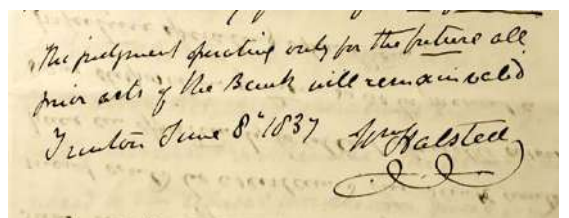 The judgment operating only for the future all
prior acts of the Bank will remain valid
Trenton June 8th 1837 Wm Halsted